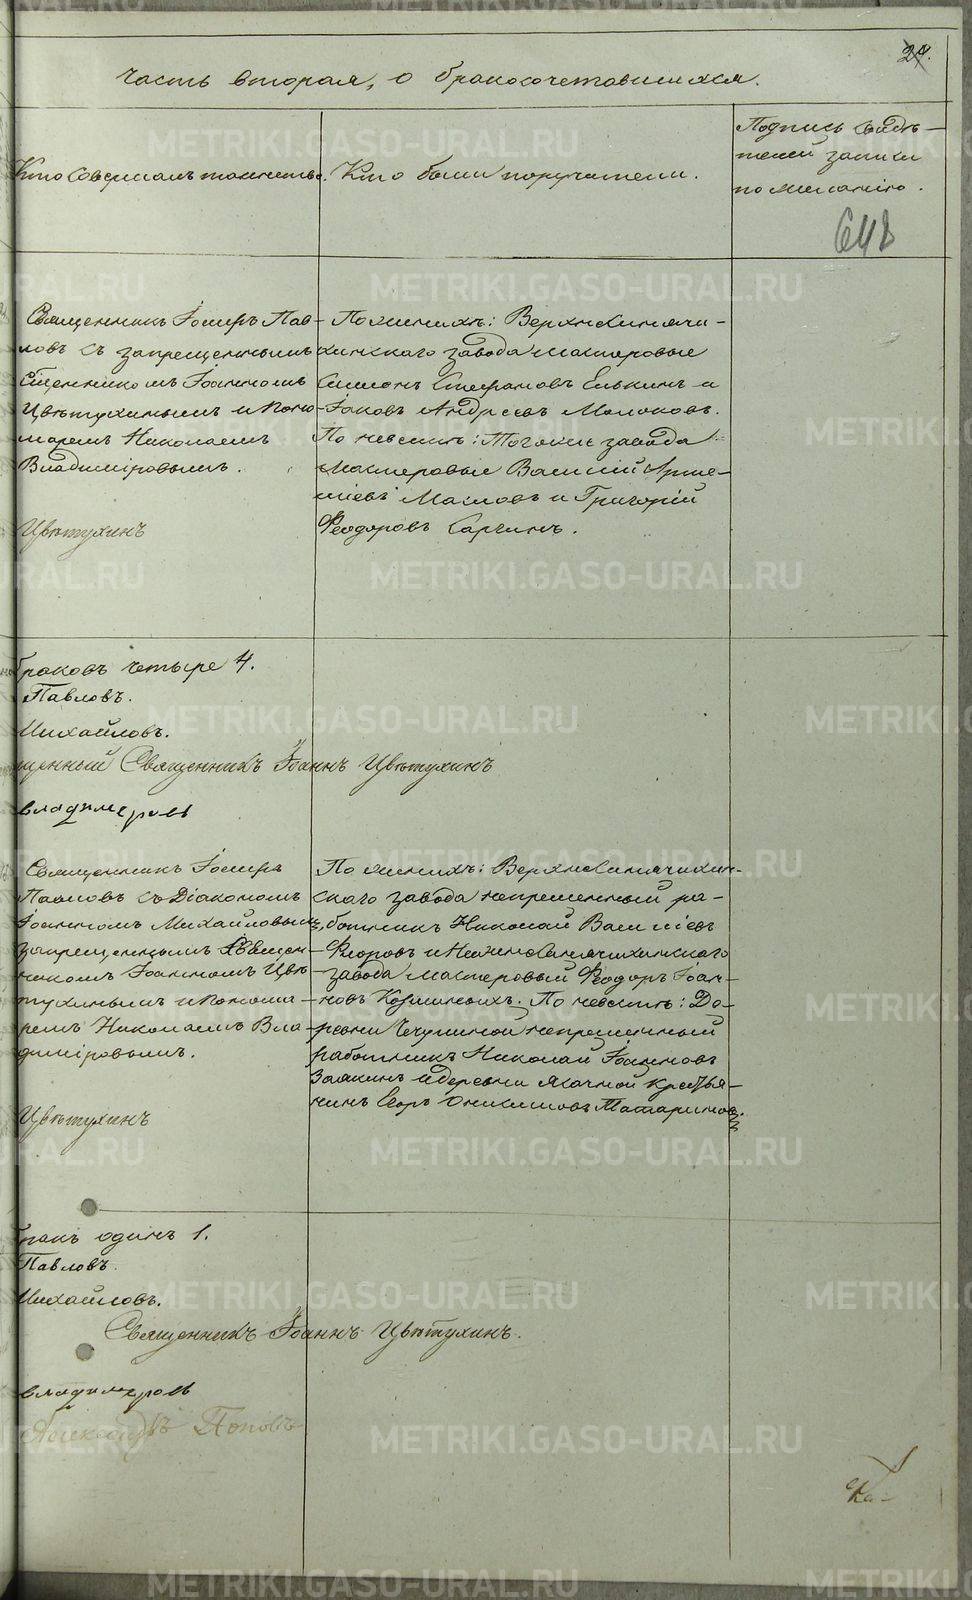 Часть вторая, о бракосочетавшихся.
Кто совершалъ таинство.
Кто были поручители.
Подпись свидѣ-
телей записи
по желанію.
648
Священникъ Іосифъ Пав-
ловъ съ запрещеннымъ
Священникомъ Іоанномъ
Цвѣтухинымъ и Поно-
маремъ Николаемъ
Владиміровымъ.
Цвѣтухинъ
По женихѣ: Верхнесинячи-
хинскаго завода мастеровые
Симеонъ Стефановъ Елькинъ и
Іаковъ Андреевъ Молоковъ.
По невѣстѣ: Тогоже завода
мастеровые Василій Арте-
міевъ Масловъ и Григорій
Феодоровъ Сарчинъ.
браковъ четыре 4.
Павловъ.
Михайловъ.
щенный Священникъ Іоаннъ Цвѣтухинъ
Владимеровъ
Священникъ Іосифъ
Павловъ съ Діакономъ
Іоанномъ Михайловымъ,
запрещеннымъ Священ-
никомъ Іоанномъ Цвѣ-
тухинымъ и Понома-
ремъ Николаемъ Вла-
диміровымъ.
Цвѣтухинъ
По женихѣ: Верхнесинячихин-
скаго завода непремѣнный ра-
ботникъ Николай Василіевъ
Флоровъ и Нижнесинячихинскаго
завода мастеровый Феодоръ Іоан-
новъ Кореминыхъ. По невѣстѣ: Де-
ревни Чечулиной непремѣнный
работникъ Николай Іоанновъ
Заякинъ и деревни Ялачной крестья-
нинъ Егоръ Онисимовъ Татариновъ.
бракъ одинъ 1.
Павловъ.
Михайловъ.
Священникъ Іоаннъ Цвѣтухинъ.
Владимеровъ
Александръ Поповъ
METRIKI.GASO-URAL.RU